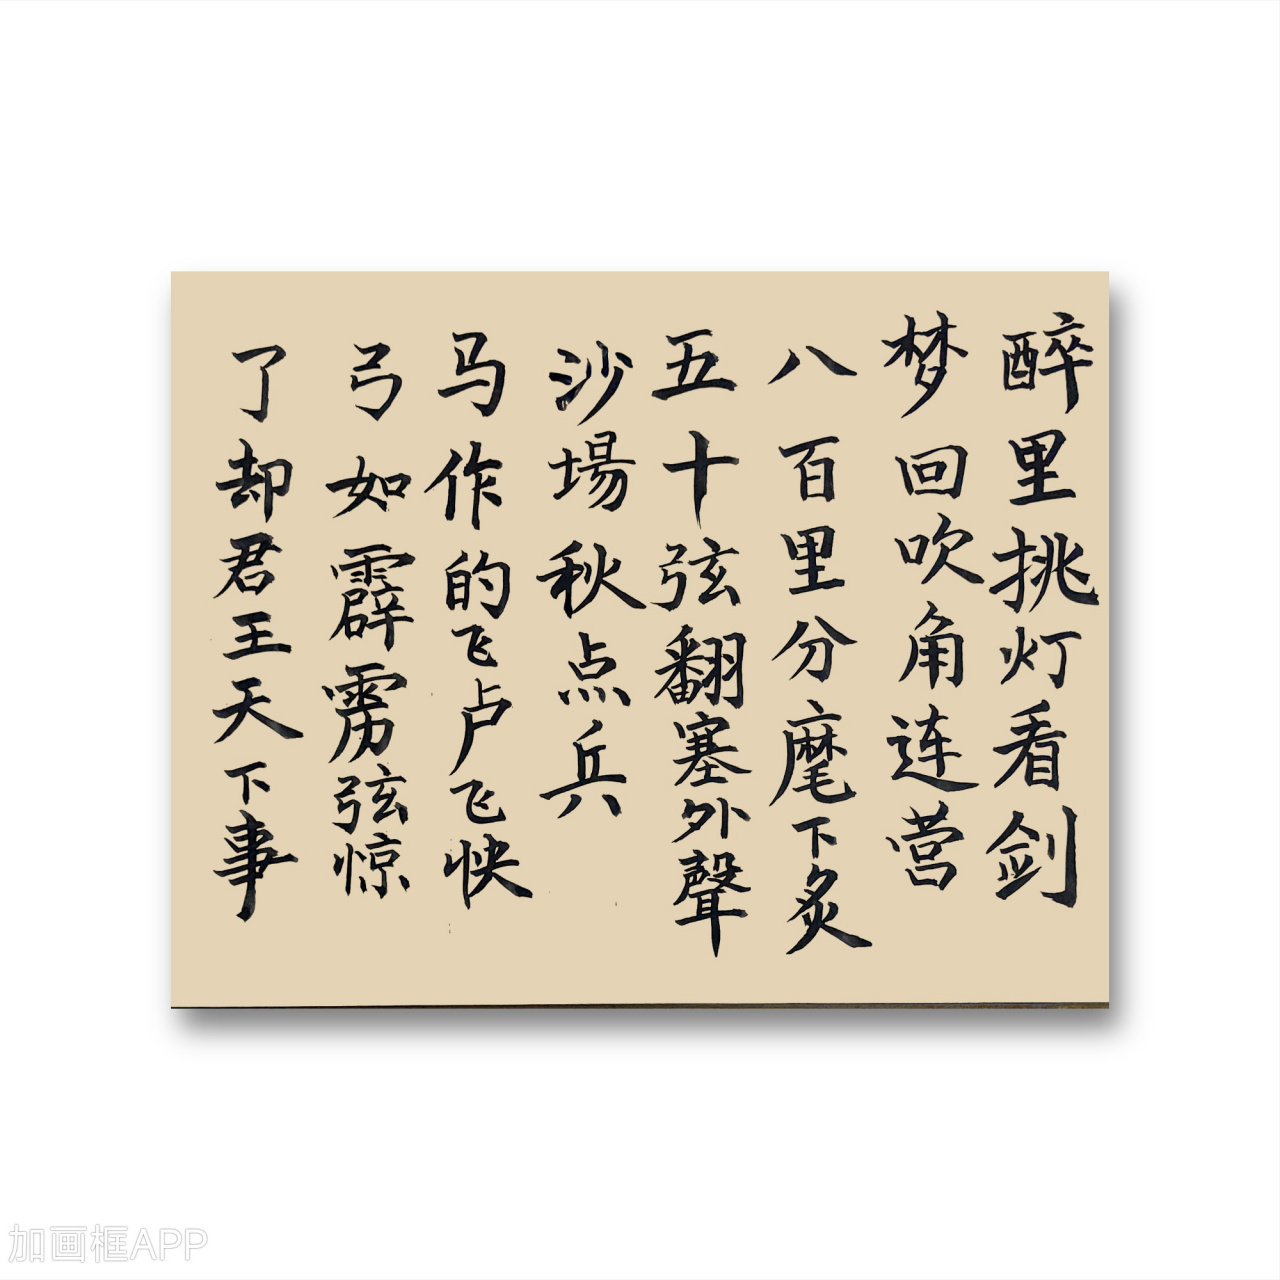 醉里挑灯看剑
梦回吹角连营
八百里分麾下炙
五十弦翻塞外聲
沙場秋点兵
马作的飞卢飞快
弓如霹雳弦惊
了却君王天下事
加画框APP